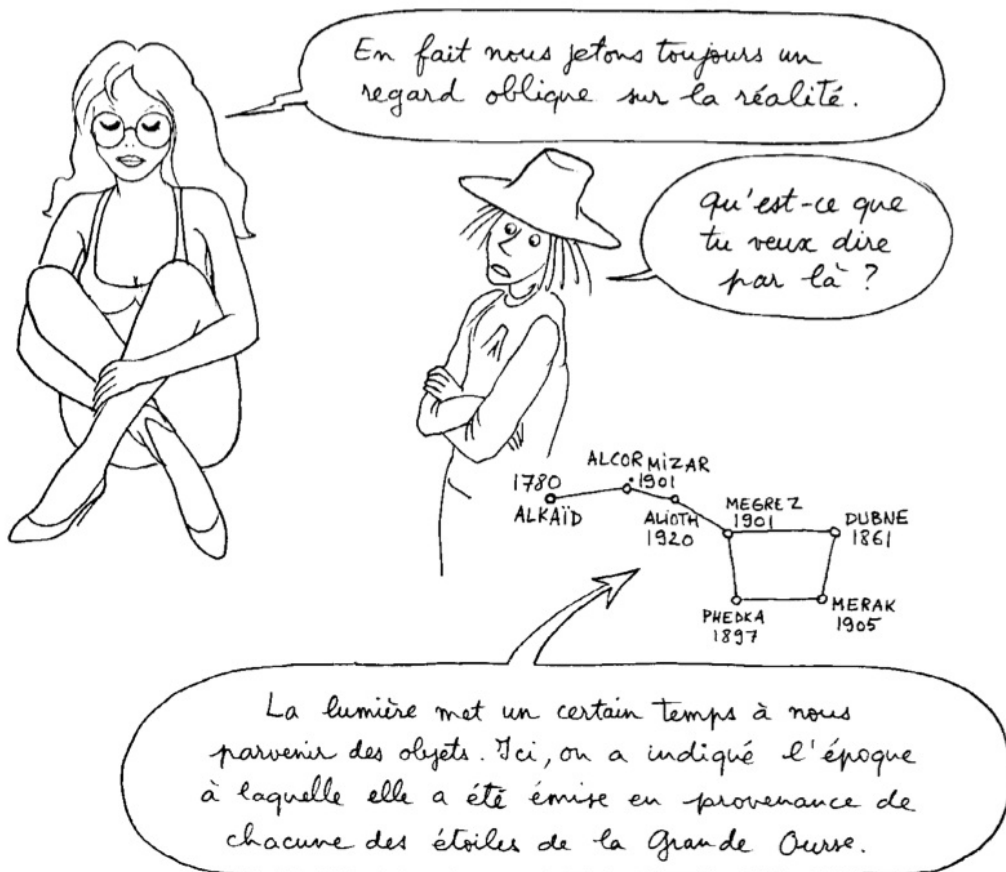 En fait nous jetons toujours un
regard oblique sur la réalité.
Qu'est-ce que
tu veux dire
par là ?
ALCOR MIZAR
1780 1901
ALKAÏD
ALIOTH
1920
MEGREZ
1901
DUBNE
1861
PHEDKA
1897
MERAK
1905
La lumière met un certain temps à nous
parvenir des objets. Ici, on a indiqué l'époque
à laquelle elle a été émise en provenance de
chacune des étoiles de la Grande Ourse.